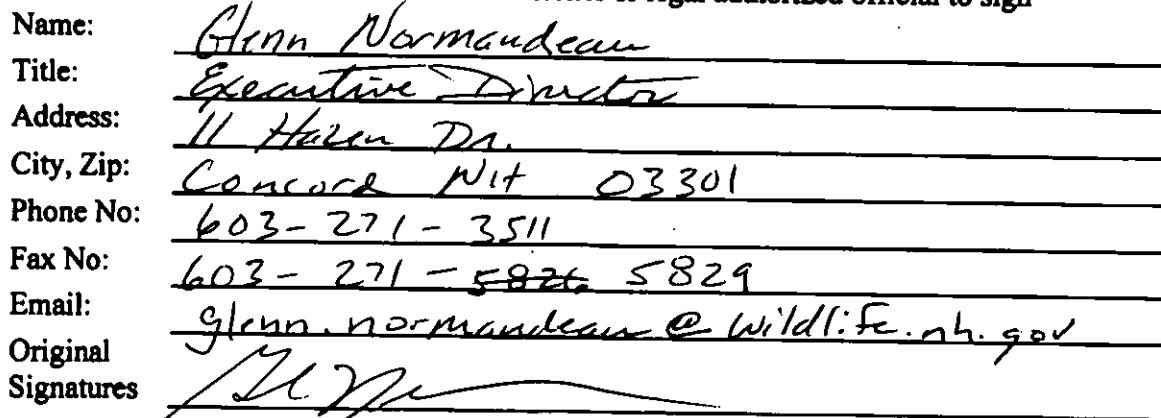 or legal authorized official to sign
Name: Glenn Normandeau
Title: Executive Director
Address: 11 Hazen Dr.
City, Zip: Concord NH 03301
Phone No: 603-271-3511
Fax No: 603-271-5826 5829
Email: glenn.normandeau@wildlife.nh.gov
Original
Signatures